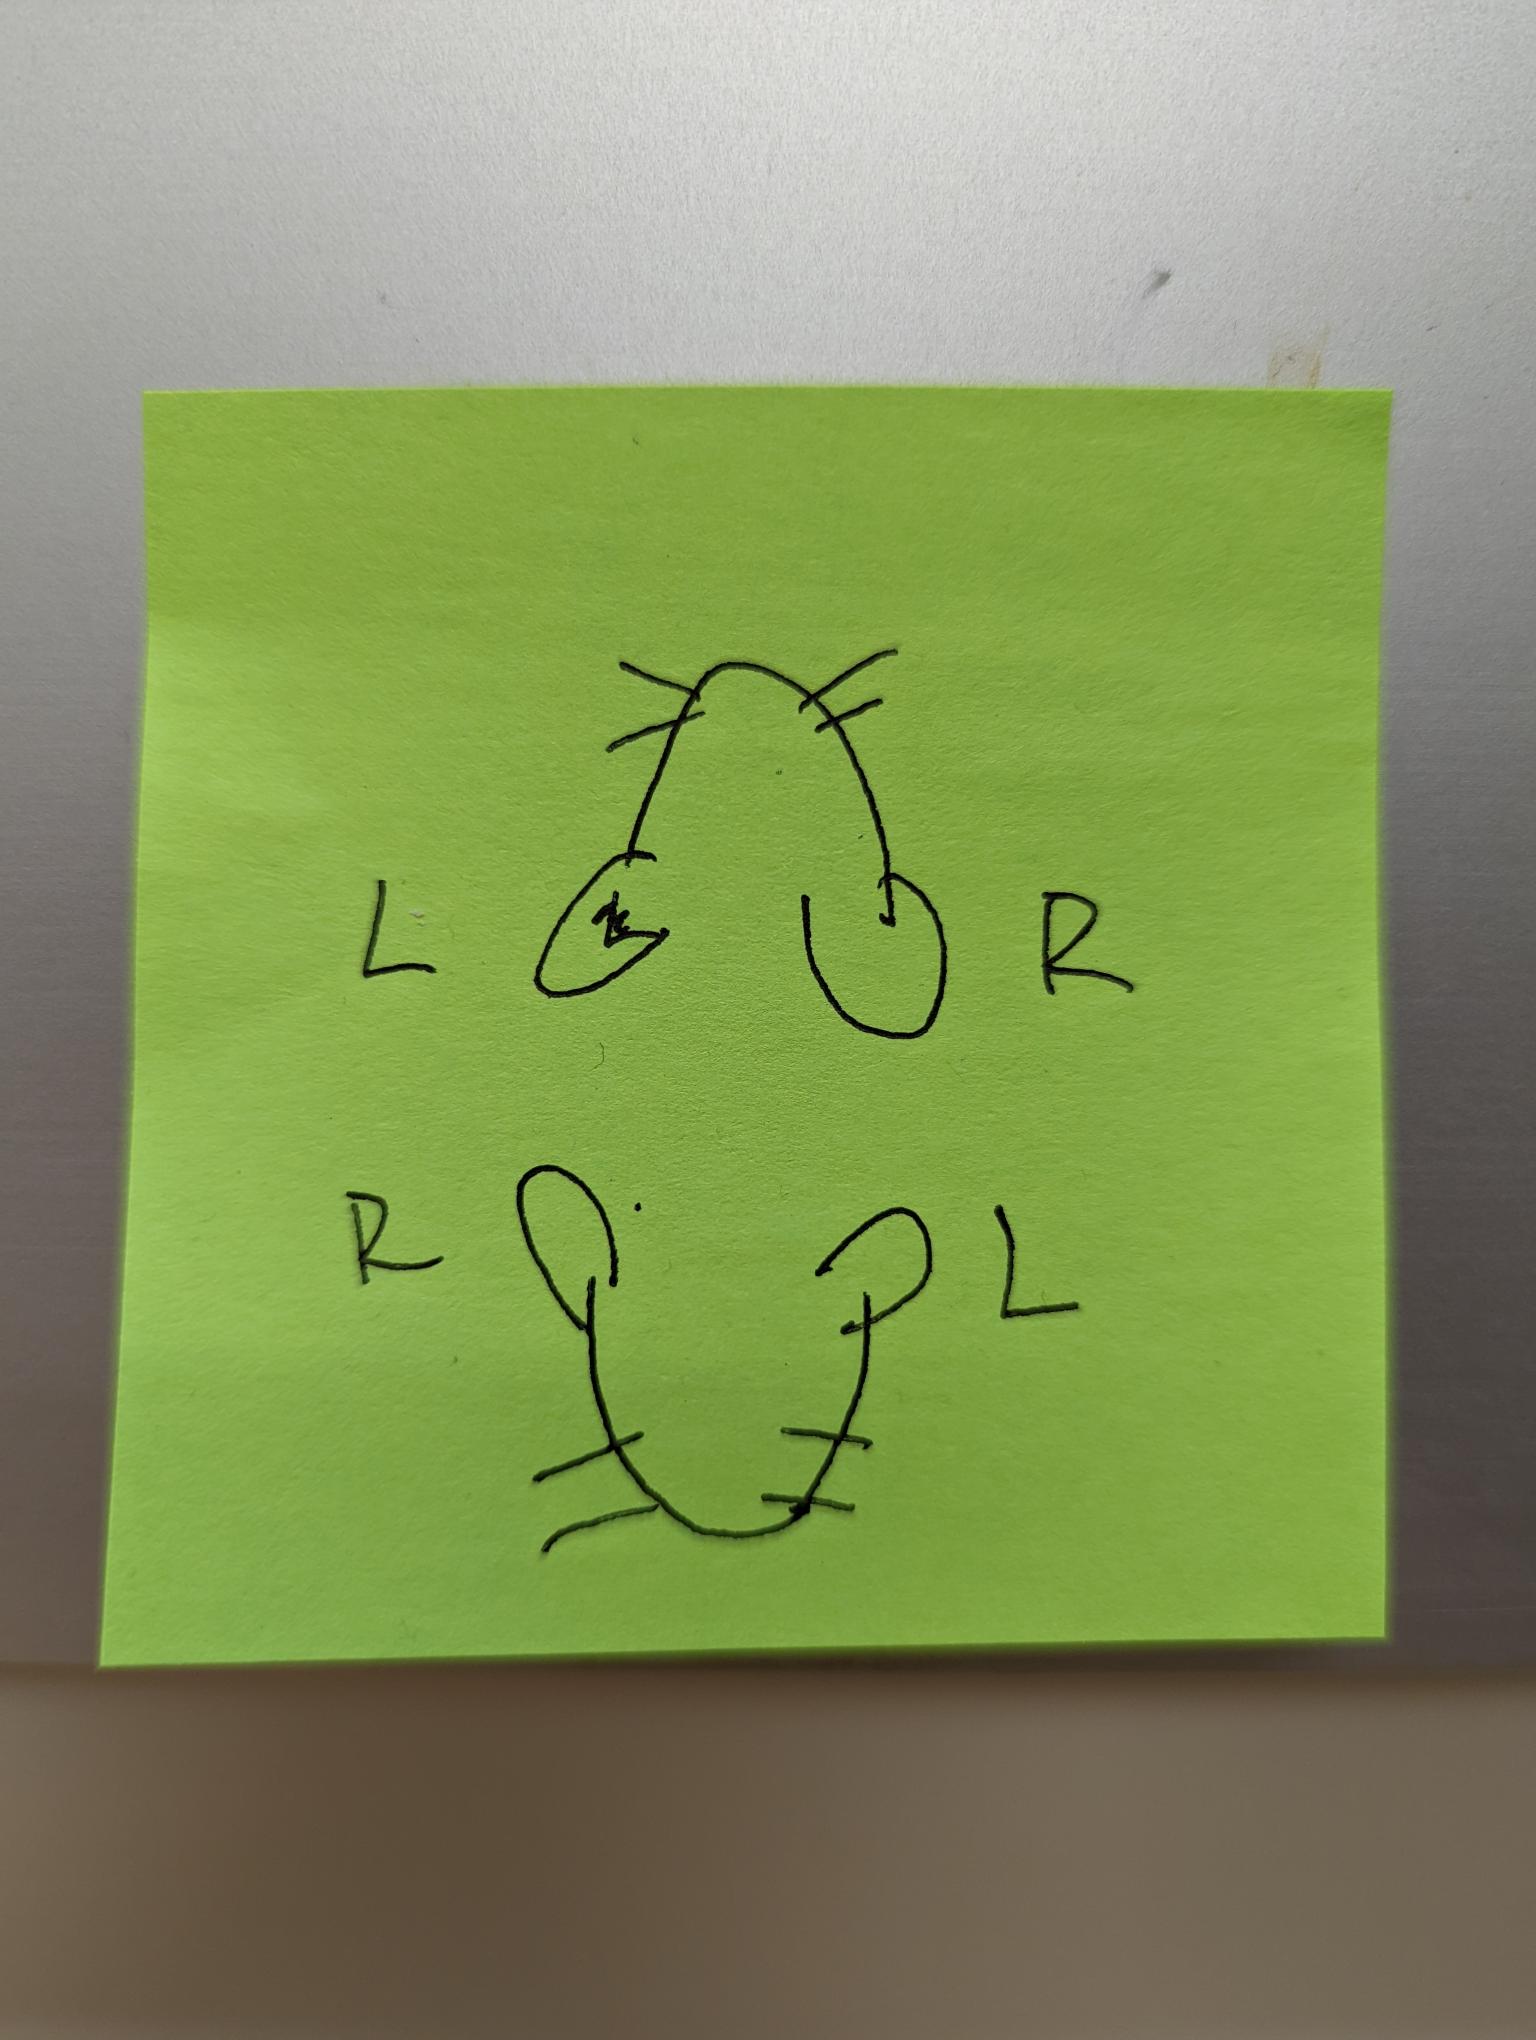 L R
R L